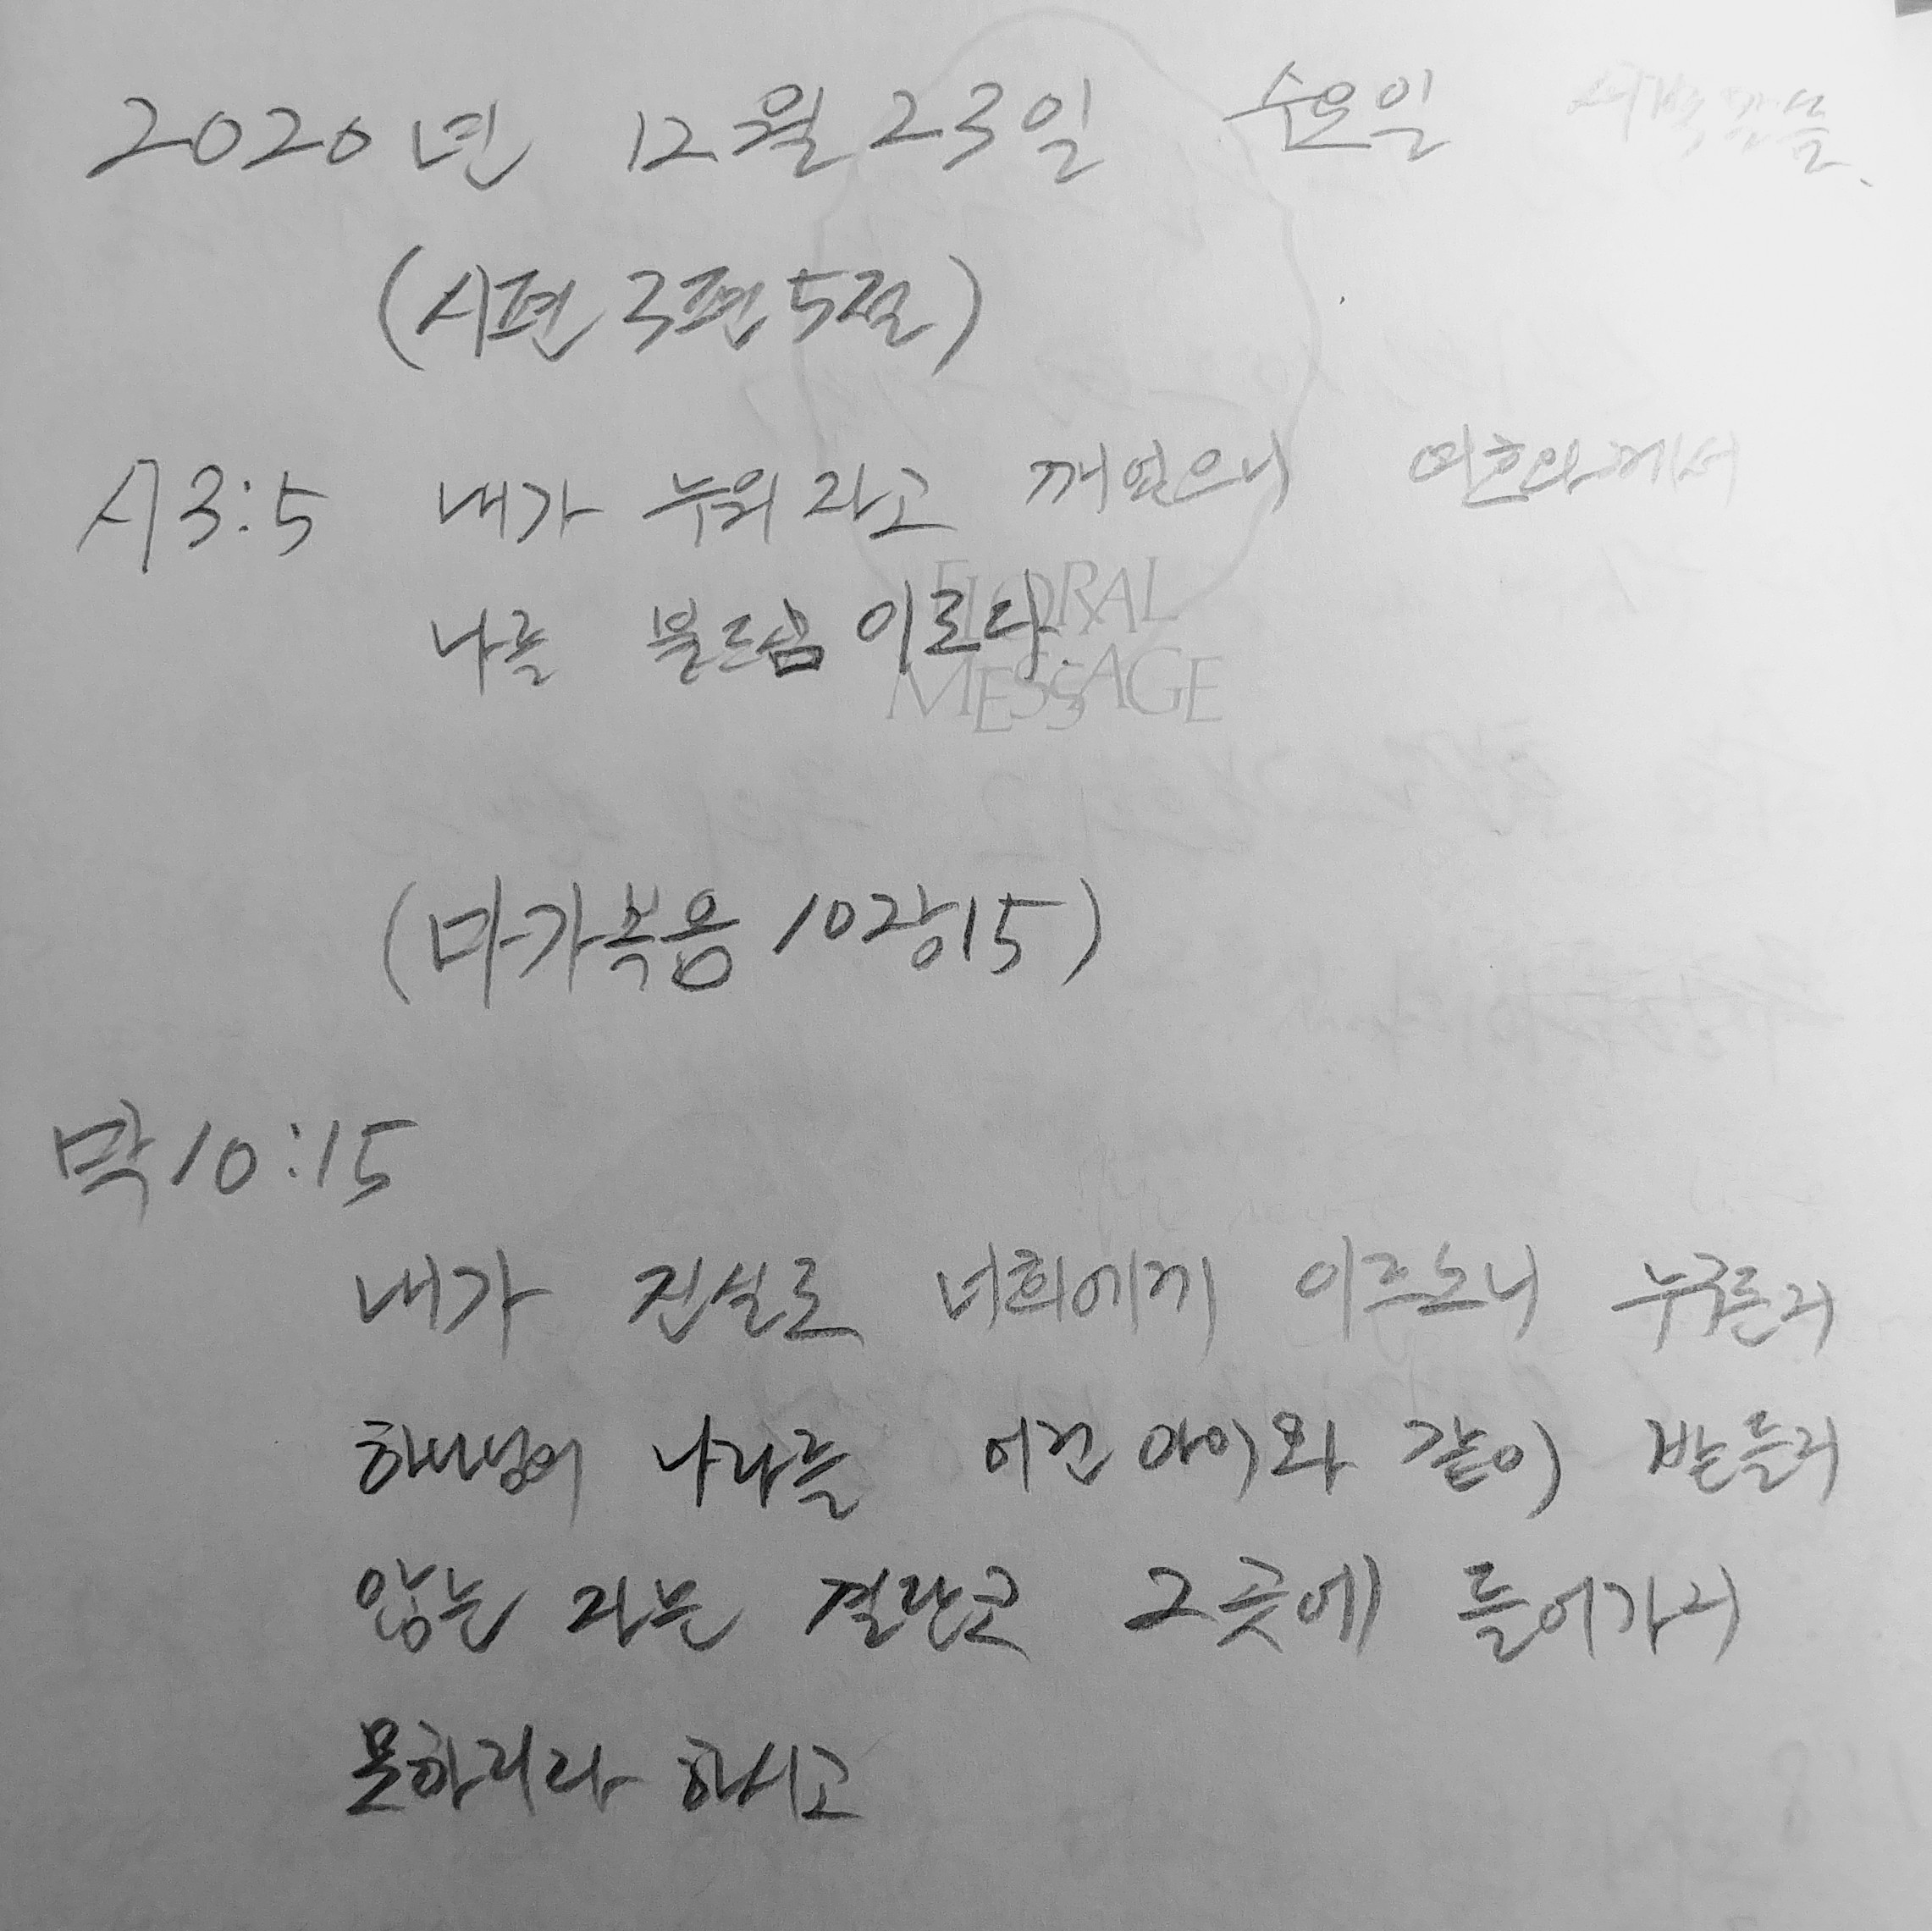 2020년 12월 23일 수요일 새벽말씀
(시편 3편 5절)
시 3:5 내가 누워 자고 깨었으니 여호와께서
나를 붙드심이로다.
FLORAL
MESSAGE
(마가복음 10장 15)
막 10:15
내가 진실로 너희에게 이르노니 누구든지
하나님의 나라를 어린 아이와 같이 받들지
않는 자는 결단코 그 곳에 들어가지
못하리라 하시고